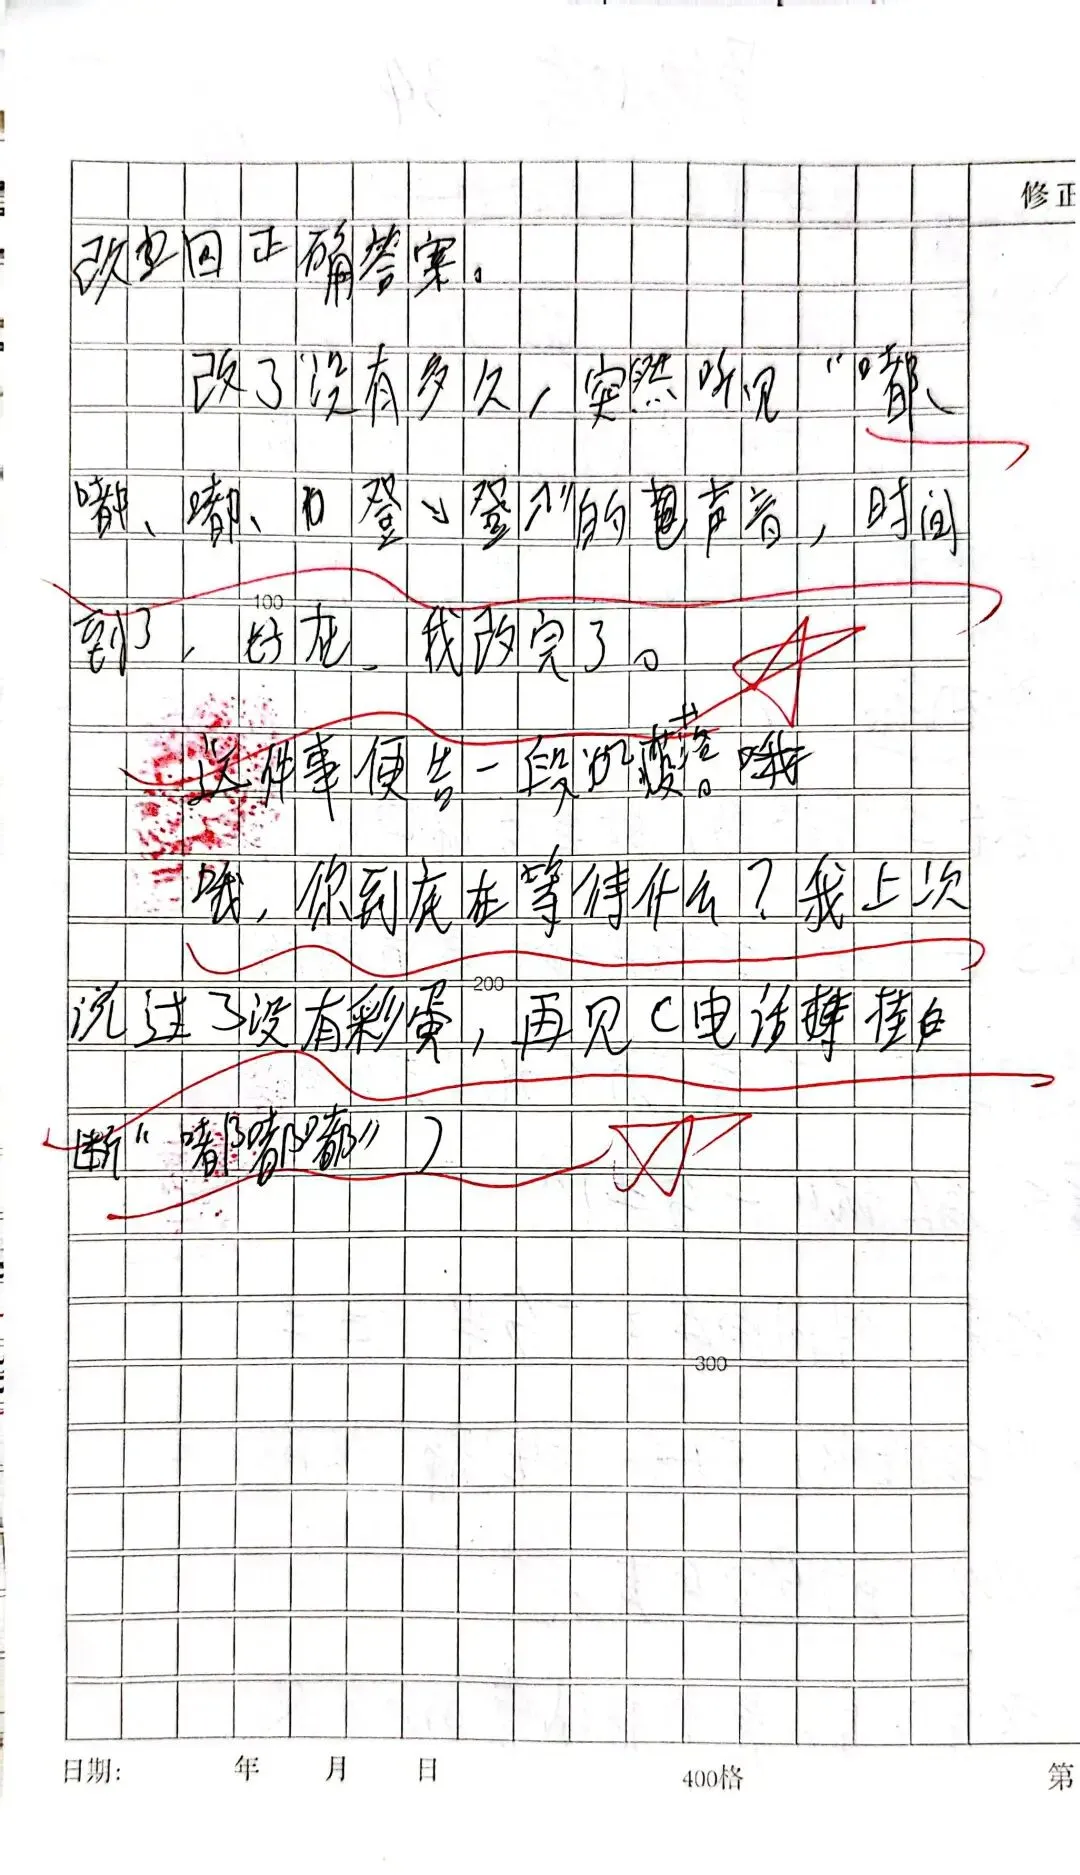 修正
改 回正确答案。
改了没有多久，突然听见“嘟、
嘟、嘟、 登 登”的 声音，时间
100
到了，好在，我改完了。
这件事便告一段 落。哦
哦，你到底在等待什么？我上次
200
说过了没有彩蛋，再见（电话 挂
断“嘟嘟嘟”）
300
日期： 年 月 日 400格 第